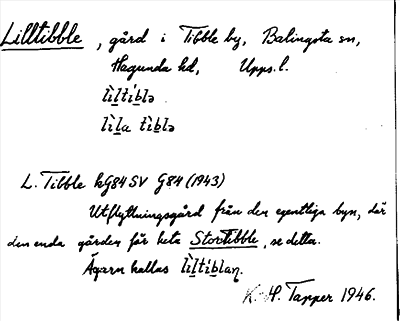 Lilltibble, gård i Tibble by, Balingsta sn,
Hagunda hd, Upps. l.
lìltíblə
lìla tìblə
L. Tibble kG84SV G84 (1943)
Utflyttningsgård från den egentliga byn, där
den enda gården får heta Stortibble, se detta.
Ägarn kallas lìltíblaɳ.
K.-H. Tapper 1946.